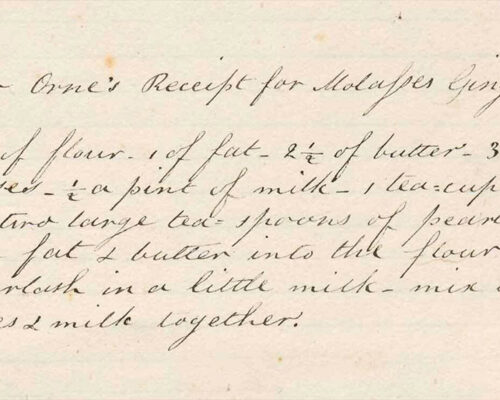 Orne's Receipt for Molasses Ging
of flour - 1 of fat - 2 ½ of butter - 3
ses - ½ a pint of milk - 1 tea=cup
two large tea=spoons of pearl
fat & butter into the flour
rlash in a little milk - mix
es & milk together.